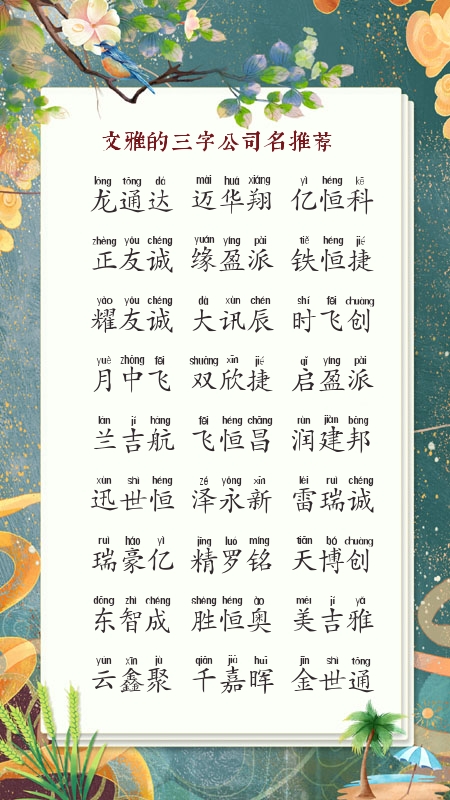 文雅的三字公司名推荐
lóng tōng dá mài huá xiáng yì héng kē
龙通达 迈华翔 亿恒科
zhèng yǒu chéng yuán yíng pài tiě héng jié
正友诚 缘盈派 铁恒捷
yào yǒu chéng dà xùn chén shí fēi chuàng
耀友诚 大讯辰 时飞创
yuè zhōng fēi shuāng xīn jié qǐ yíng pài
月中飞 双欣捷 启盈派
lán jí háng fēi héng chāng rùn jiàn bāng
兰吉航 飞恒昌 润建邦
xùn shì héng zé yǒng xīn léi ruì chéng
迅世恒 泽永新 雷瑞诚
ruì háo yì jīng luó míng tiān bó chuàng
瑞豪亿 精罗铭 天博创
dōng zhì chéng shèng héng ào měi jí yǎ
东智成 胜恒奥 美吉雅
yún xīn jù qiān jiā huī jīn shì tōng
云鑫聚 千嘉晖 金世通